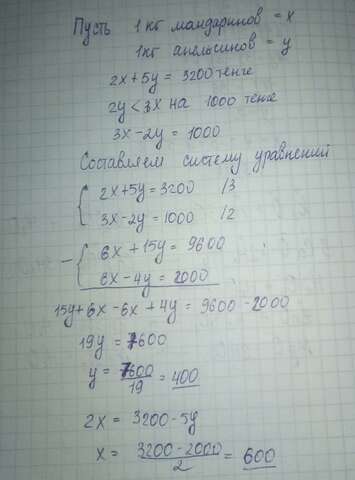 Пусть 1 кг мандаринов = x
1кг апельсинов = y
2x + 5y = 3200 тенге
2y < 3x на 1000 тенге
3x - 2y = 1000
Составляем систему уравнений
{ 2x + 5y = 3200 /3
3x - 2y = 1000 /2
- { 6x + 15y = 9600
6x - 4y = 2000
15y + 6x - 6x + 4y = 9600 - 2000
19y = 7600
y = 7600/19 = 400
2x = 3200 - 5y
x = 3200 - 2000/2 = 600